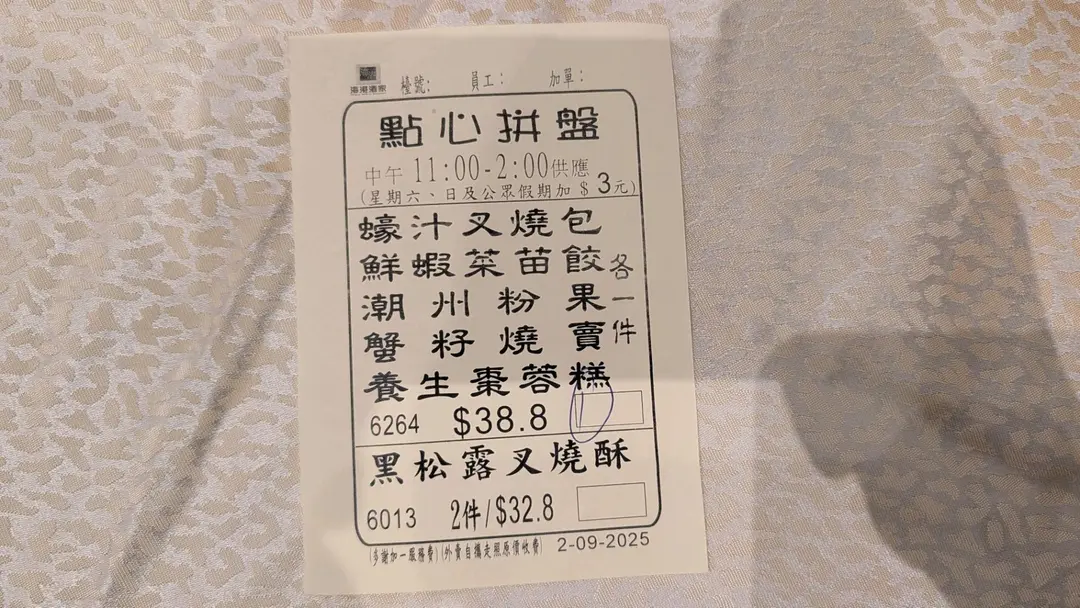 海港酒家 檯號: 員工: 加單:
點心拼盤
中午 11:00-2:00供應
(星期六、日及公眾假期加 $ 3元)
蠔汁叉燒包
鮮蝦菜苗餃
潮州粉果
蟹籽燒賣
養生棗蓉糕
各一件
6264 $38.8
黑松露叉燒酥
6013 2件/$32.8
(多謝加一服務費)(外賣自攜走照原價收費) 2-09-2025